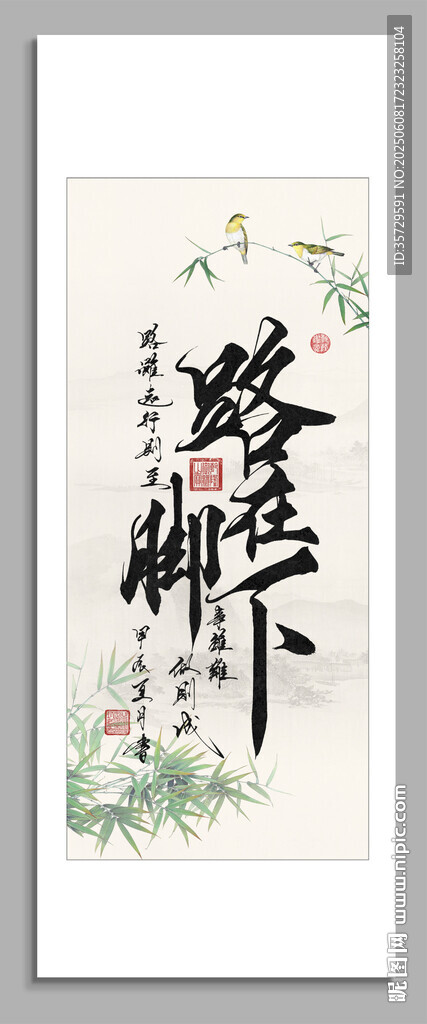 路在脚下
路雖遠行則至
事雖難
做則成
甲辰夏月書
ID:35729591 NO:20250608172323258104
昵图网 www.nipic.com